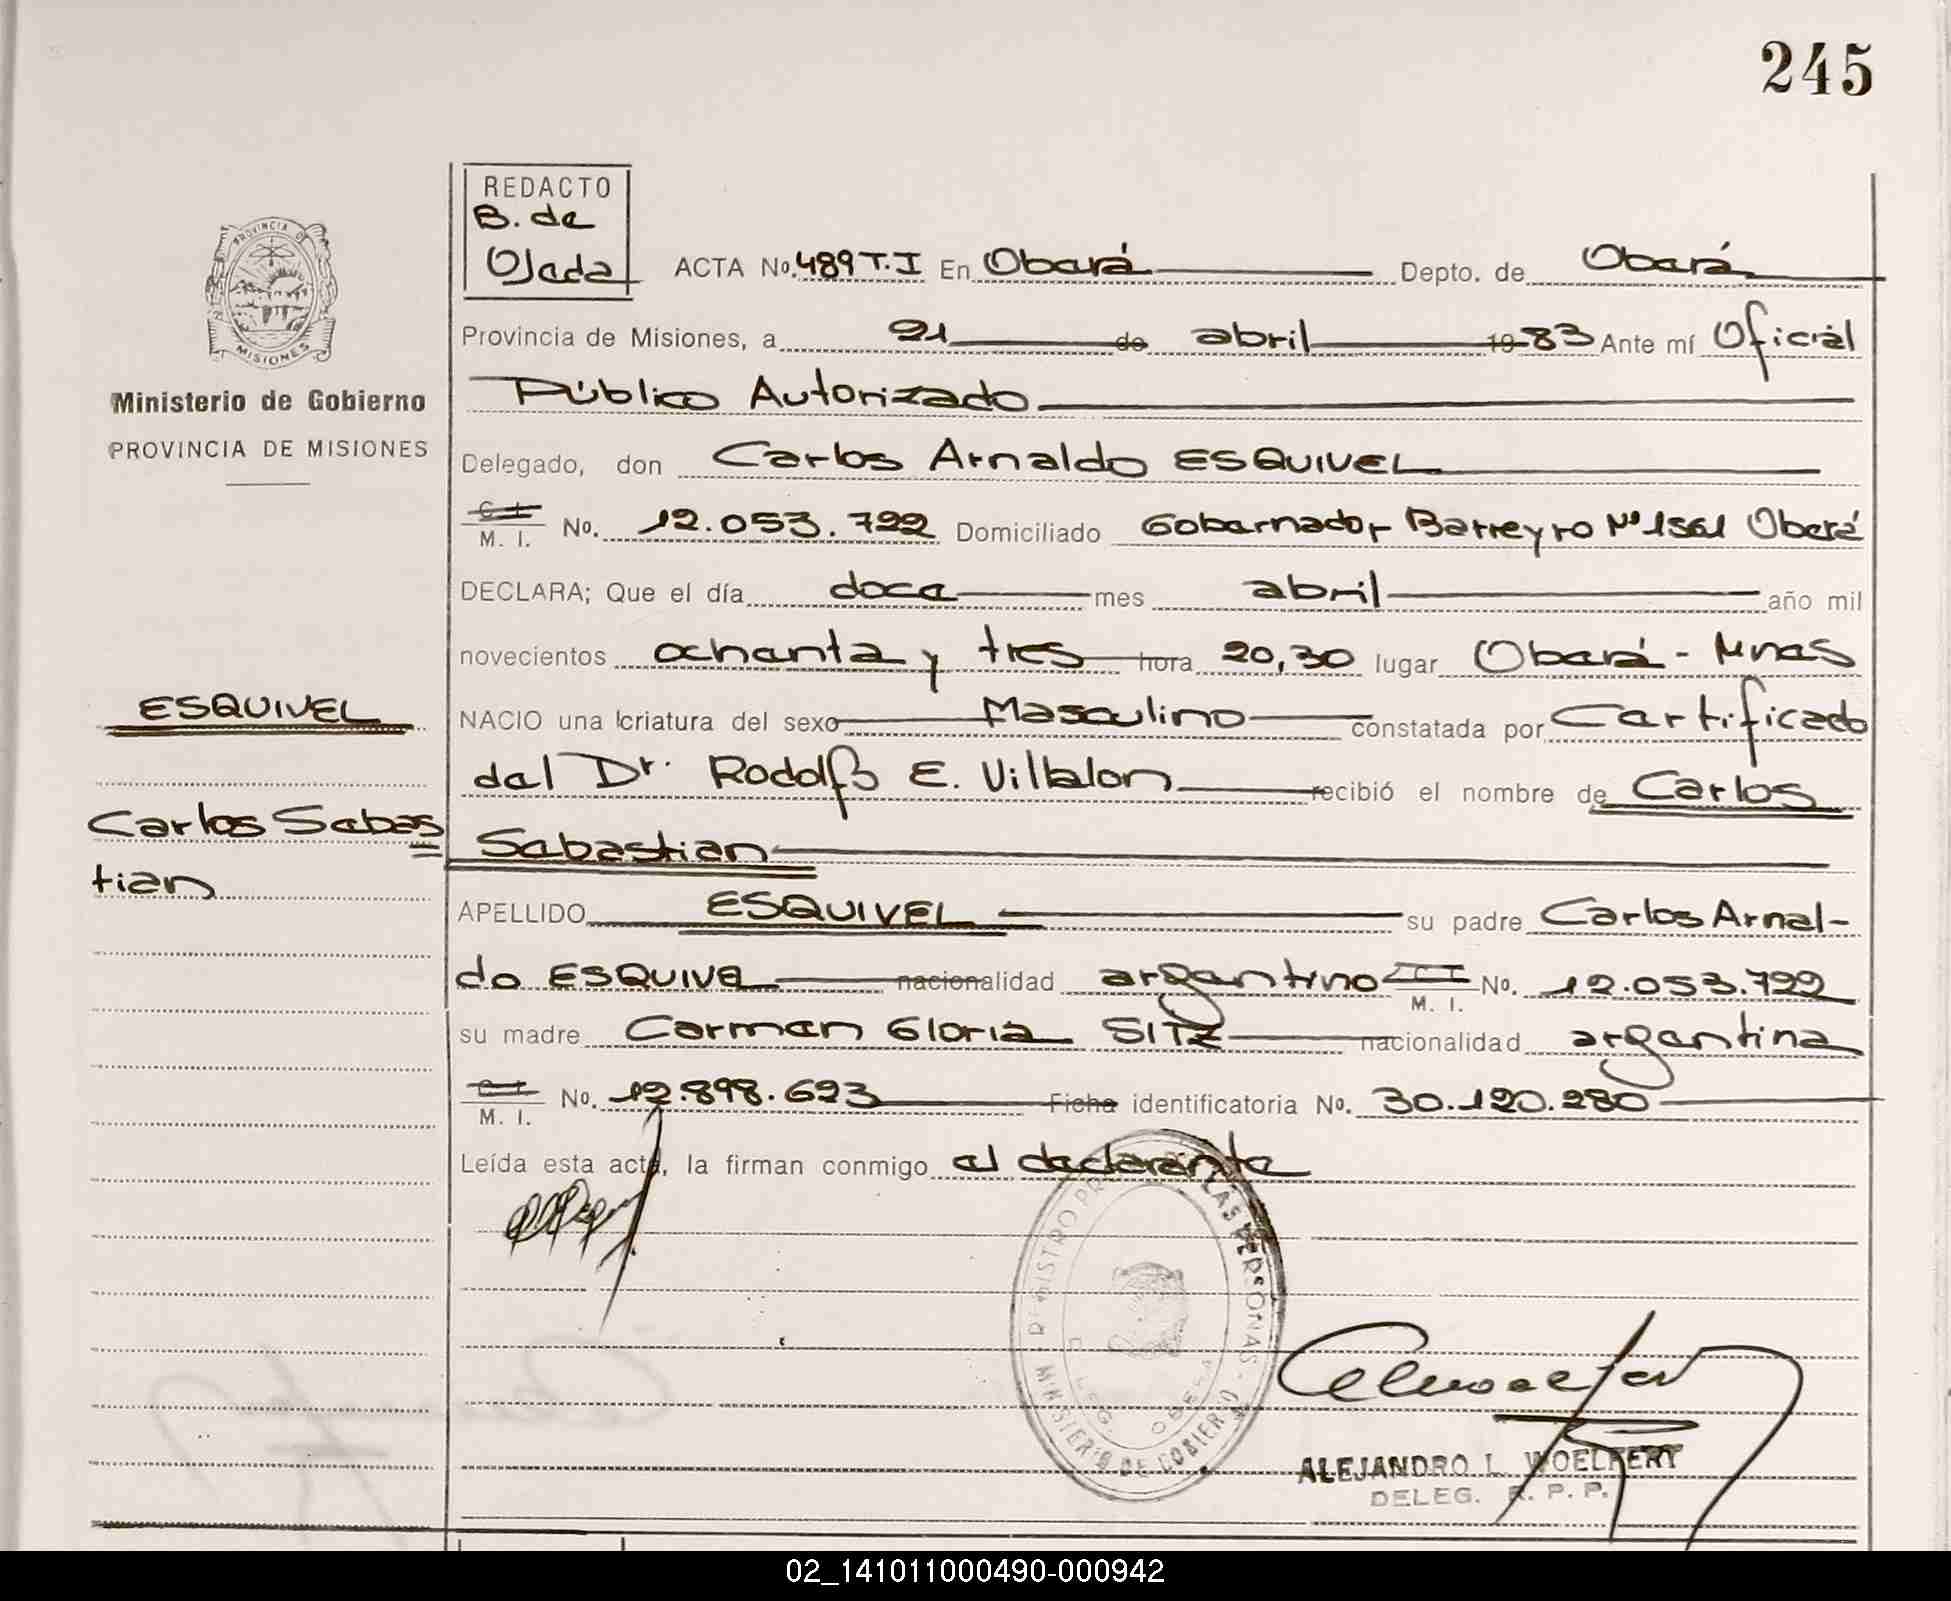 245
REDACTO
B. de
Ojeda
ACTA No. 489 T.I En Oberá Depto. de Oberá
Provincia de Misiones, a 21 de abril 1983 Ante mí Oficial
Público Autorizado
Delegado, don Carlos Arnaldo ESQUIVEL
C. I.
M. I. No. 12.053.722 Domiciliado Gobernador Barreyro Nº 1561 Oberá
DECLARA; Que el día doce mes abril año mil
novecientos ochenta y tres hora 20,30 lugar Oberá - Mnes
NACIO una criatura del sexo Masculino constatada por Certificado
del Dr. Rodolfo E. Villalon recibió el nombre de Carlos
Sebastian
APELLIDO ESQUIVEL su padre Carlos Arnal-
do ESQUIVEL nacionalidad argentino C. I.
M. I. No. 12.053.722
su madre Carmen Gloria SITZ nacionalidad argentina
C. I.
M. I. No. 12.898.623 Ficha identificatoria No. 30.120.280
Leída esta acta, la firman conmigo el declarante
PROVINCIA DE
MISIONES
Ministerio de Gobierno
PROVINCIA DE MISIONES
ESQUIVEL
Carlos Sebas=
tian
LAS PERSONAS - MINISTERIO DE GOBIERNO
DELEG. OBERA
ALEJANDRO L. WOELFERT
DELEG. R. P. P.
02_141011000490-000942